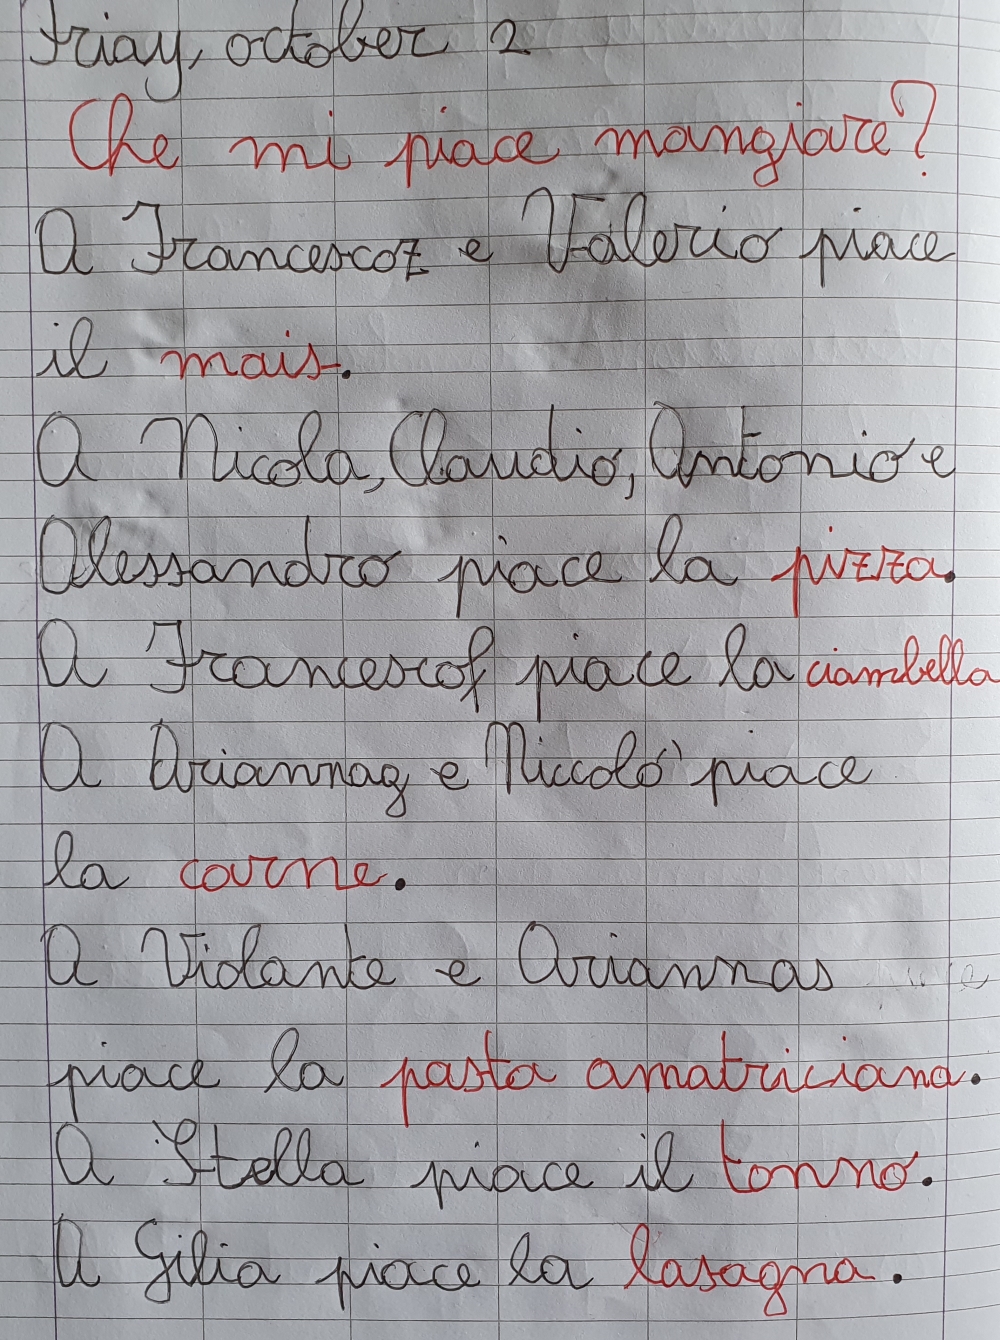 Friay, october 2
Che mi piace mangiare?
A Francescoz e Valerio piace
il mais.
A Nicola, Claudio, Antonio e
Alessandro piace la pizza.
A Francescof piace la ciambella
A Ariannag e Niccoló piace
la carne.
A Violante e Ariannas
piace la pasta amatriciana.
A Stella piace il tonno.
A Gilia piace la lasagna.